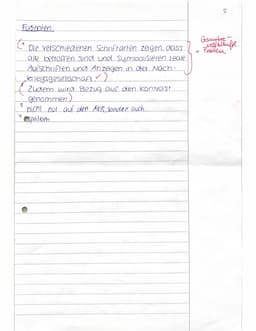 Fußnoten
Die verschiedenen Schriftarten zeigen, dass
alle betroffen sind und symbolisieren reale
Aufschriften und Anzeigen in der Nach-
kriegsgesellschaft
(Zudem wird Bezug auf den Kontrast
genommen)
nicht nur auf den
sondern auch